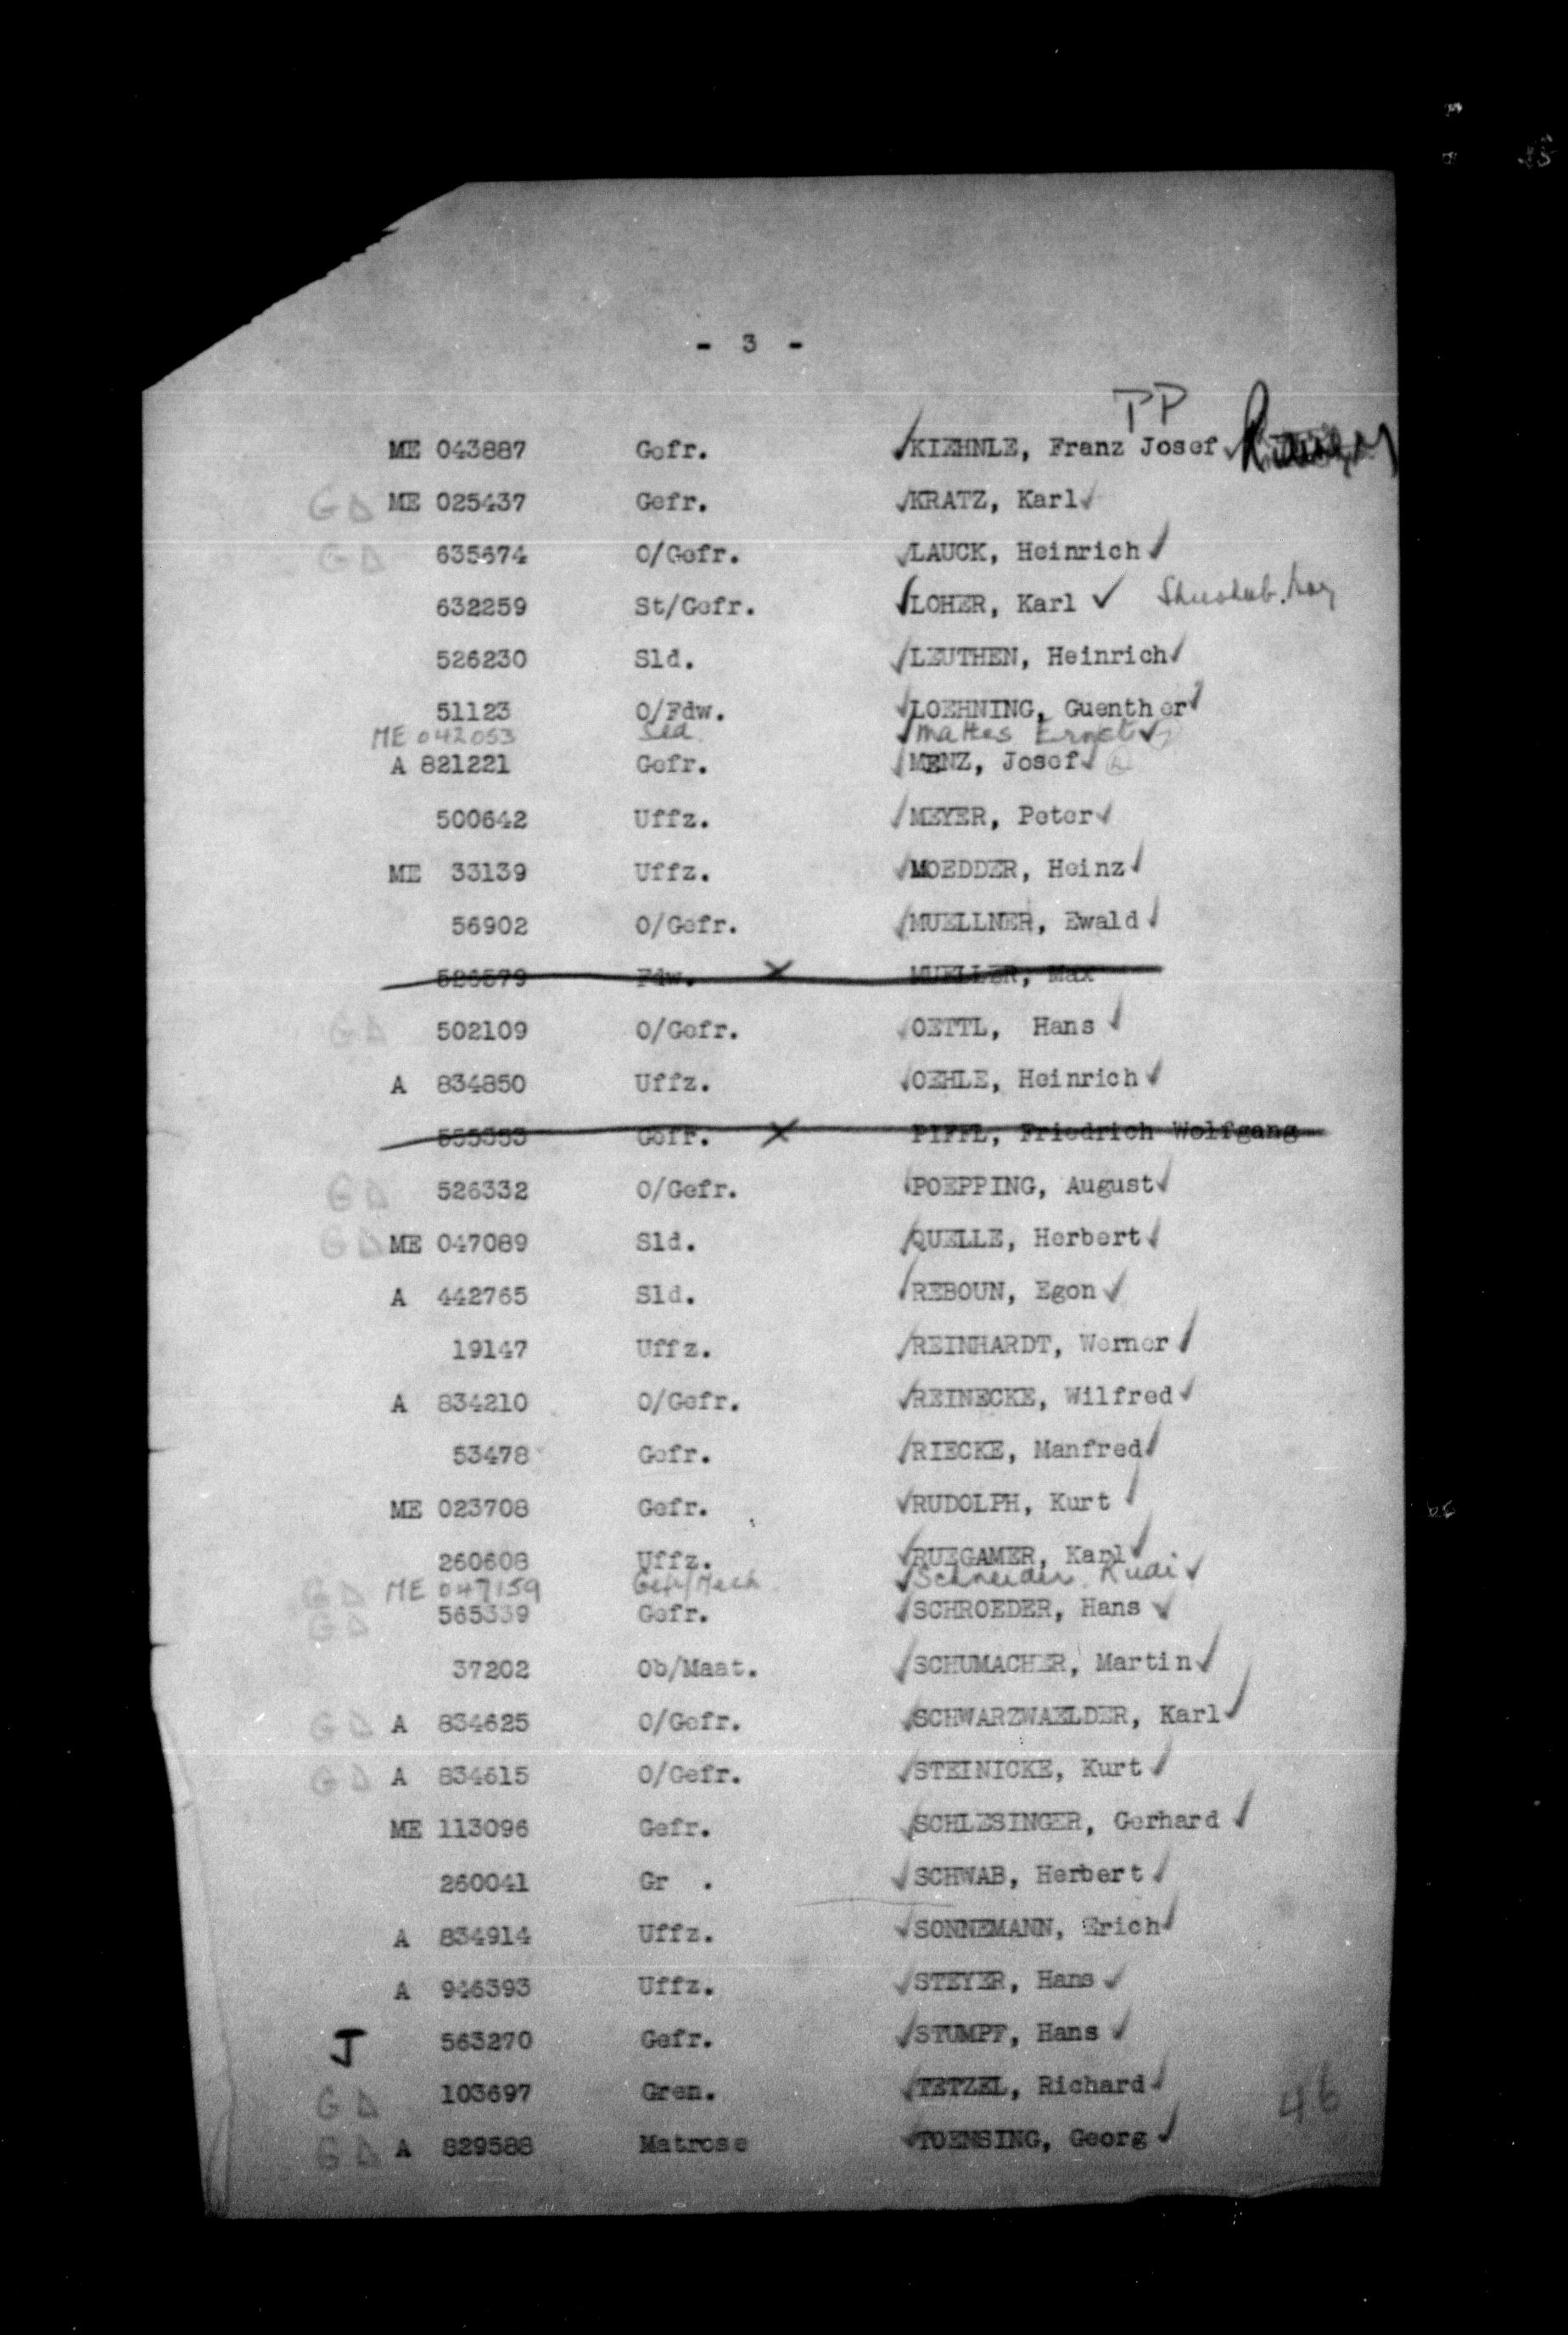 - 3 -
PP
ME 043887 Gefr. ✓KIEHNLE, Franz Josef ✓
GD ME 025437 Gefr. ✓KRATZ, Karl ✓
GD 635674 O/Gefr. ✓LAUCK, Heinrich ✓
632259 St/Gefr. ✓LOHER, Karl ✓
526230 Sld. ✓LEUTHEN, Heinrich ✓
51123 O/Fdw. ✓LOEHNING, Guenther ✓
ME 042053 Sld ✓Mattes Ernst ✓
A 821221 Gefr. ✓MENZ, Josef ✓
500642 Uffz. ✓MEYER, Peter ✓
ME 33139 Uffz. ✓MOEDDER, Heinz ✓
56902 O/Gefr. ✓MUELLNER, Ewald ✓
526579 Fdw. X MUELLER, Max
GD 502109 O/Gefr. ✓OETTL, Hans ✓
A 834850 Uffz. ✓OEHLE, Heinrich ✓
555353 Gefr. X PIFFL, Friedrich Wolfgang
GD 526332 O/Gefr. ✓POEPPING, August ✓
GD ME 047089 Sld. ✓QUELLE, Herbert ✓
A 442765 Sld. ✓REBOUN, Egon ✓
19147 Uffz. ✓REINHARDT, Werner ✓
A 834210 O/Gefr. ✓REINECKE, Wilfred ✓
53478 Gefr. ✓RIECKE, Manfred ✓
ME 023708 Gefr. ✓RUDOLPH, Kurt ✓
260608 Uffz. ✓RUEGAMER, Karl ✓
GD ME 047159 Gefr/Mech ✓Schneider Rudi ✓
GD 565339 Gefr. ✓SCHROEDER, Hans ✓
37202 Ob/Maat. ✓SCHUMACHER, Martin ✓
GD A 834625 O/Gefr. ✓SCHWARZWAELDER, Karl ✓
GD A 834615 O/Gefr. ✓STEINICKE, Kurt ✓
ME 113096 Gefr. ✓SCHLESINGER, Gerhard ✓
260041 Gr . ✓SCHWAB, Herbert ✓
A 834914 Uffz. ✓SONNEMANN, Erich ✓
A 946393 Uffz. ✓STEYER, Hans ✓
J 563270 Gefr. ✓STUMPF, Hans ✓
GD 103697 Gren. ✓TETZEL, Richard ✓
46
GD A 829588 Matrose ✓TOENSING, Georg ✓